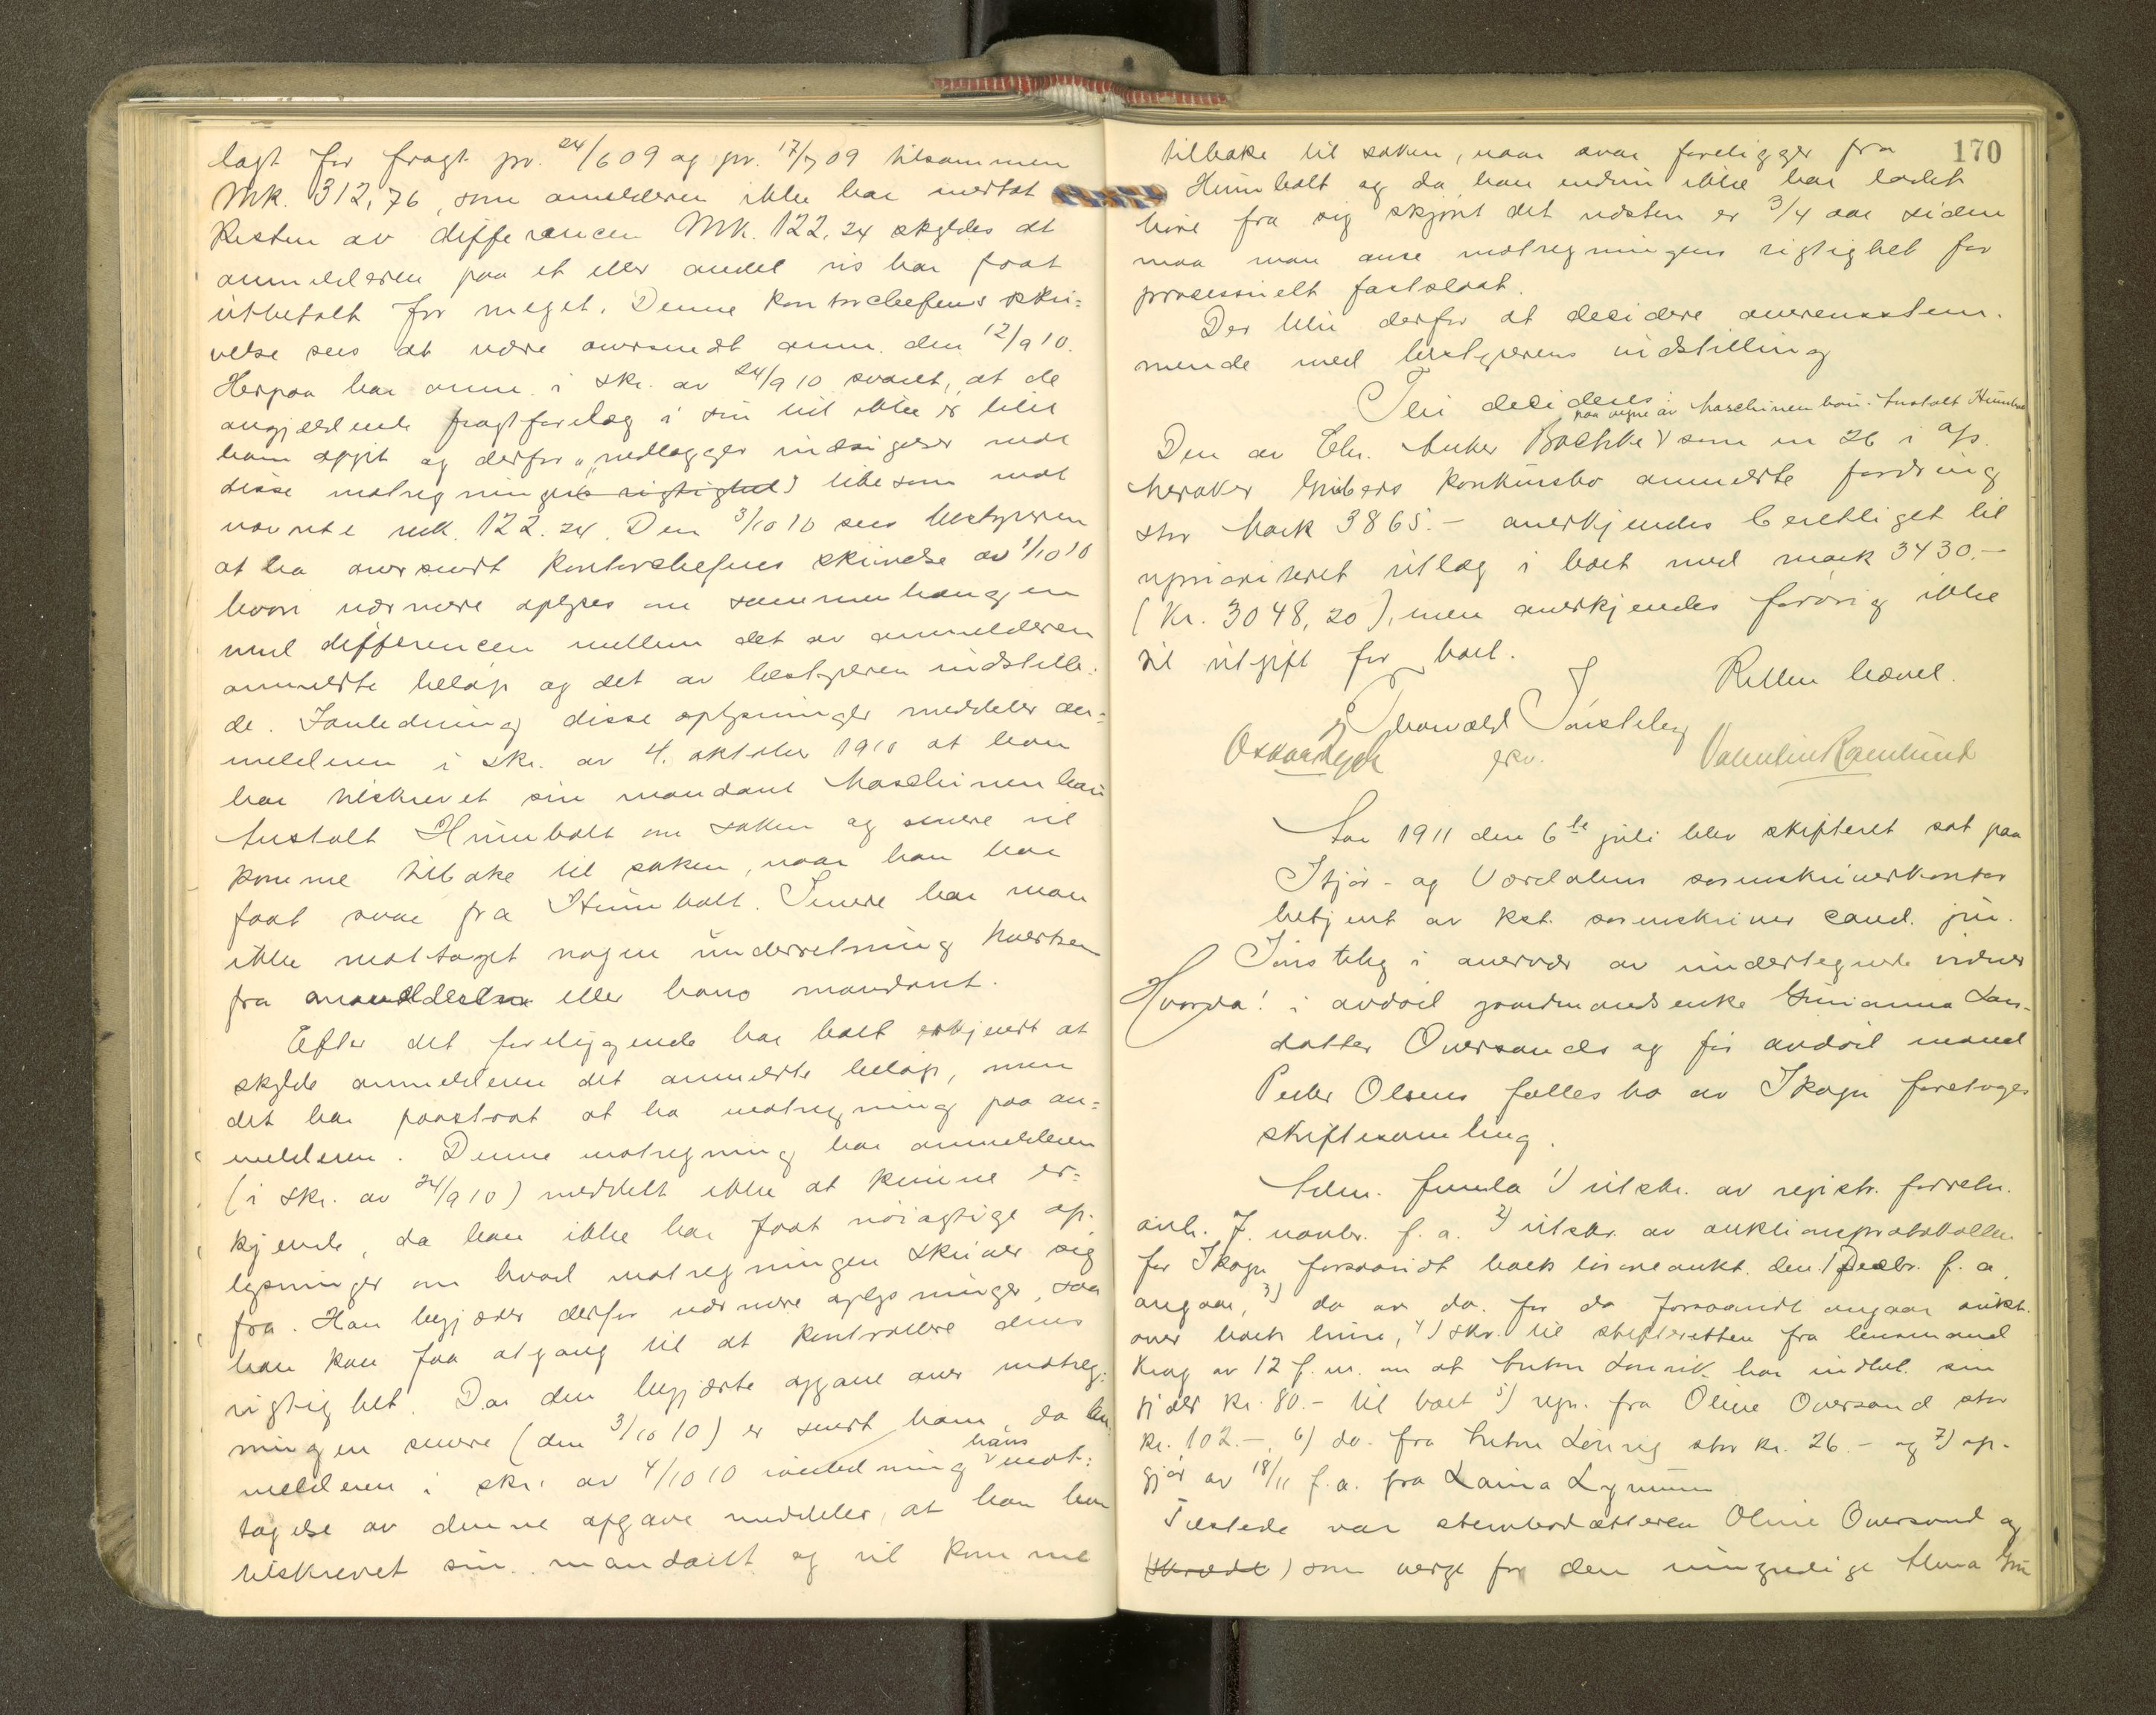 lagt for fragt pr. 24/6 09 og pr. 17/7 09 tilsammen
Mk. 312,76, som anmelderen ikke har medtat
Resten av differencen Mk. 122.24 skyldes at
anmelderen paa et eller andet vis har faat
utbetalt for meget. Denne kontorchefens skri=
velse sees at være oversendt anm. den 12/9 10.
Herpaa har anm. i skr. av 24/9 10 svaret, at de
angjældende fragtforlæg i sin tid ikke er blit
ham opgit og derfor nedlægger indsigelser mot
disse motregninger likesom mot
nævnte mk. 122.24. Den 3/10 10 sees bestyreren
at ha oversendt kontorchefens skrivelse av 1/10 10
hvori nærmere oplyses om sammenhængen
med differencen mellem det av anmelderen
anmeldte beløp og det av bestyreren indstille=
de. I anledning disse oplysninger meddeler an=
melderen i skr. av 4. oktober 1910 at han
har tilskrevet sin mandant Maschinenbau
Anstalt Humbolt om saken og senere vil
komme tilbake til saken, naar han har
faat svar fra Humbolt. Senere har man
ikke mottaget nogen underretning hverken
fra anmelderen eller hans mandant.
Efter det foreliggende har boet erkjendt at
skylde anmelderen det anmeldte beløp, men
det har paastaat at ha motregning paa an=
melderen. Denne motregning har anmelderen
(i skr. av 24/9 10) meddelt ikke at kunne er=
kjende, da han ikke har faat nøiagtige op=
lysninger om hvad motregningen skriver sig
fra. Han begjærer derfor nærmere oplysninger, saa
han kan faa adgang til at kontrollere dens
rigtighet. Da den begjærte opgave over motreg=
ningen senere (den 3/10 10) er sendt ham, da an
melderen i skr. av 4/10 10 i anledning hans mot=
tagelse av denne opgave meddeler, at han har
tilskrevet sin mandant og vil komme
170
tilbake til saken, naar svar foreligger fra
Humbolt og da han endnu ikke har ladet
høre fra sig skjønt det næsten er 3/4 aar siden
maa man anse motregningens rigtighet for
prosessuelt fastslaat.
Der blir derfor at decidere overensstem-
mende med bestyrerens indstilling
Thi decideres:
Den av Chr. Anker Bachke paa vegne av Maschinenbau-Anstalt Humbolt som nr 26 i A/S
Meraker Grubers konkursbo anmeldte fordring
stor Mark 3865.- anerkjendes berettiget til
uprioriteret utlæg i boet med mark 3430.-
(Kr. 3048,20), men anerkjendes forøvrig ikke
til utgift for boet.
Retten hævet.
Thorvald Jonsteby
Oskar Nych
gro.
Valentin Ramlund
Aar 1911 den 6te juli blev skifteret sat paa
Stjør- og Værdalens sorenskriverkontor
betjent av kst. sorenskriver cand. jur.
Jonsteby i overvær av undertegnede vidner
Hvorda! i avdød gaardmandsenke Gurianna Lars-
datter Oversands og før avdød mand
Peder Olsens fællesbo av Skogn foretoges
skiftesamling.
Adm. fremla 1) utskr. av registr. forretn.
avh. 7. novbr. f. a. 2) utskr. av auktionsprotokollen
for Skogn forsaavidt boets løsøreaukt. den 1 Decbr. f. a.
angaar, 3) do av do. for do forsaavidt angaar aukt.
over boets hus, 4) skr. til skifteretten fra lensmand
Krag av 12 f. m. om at Anton Lorvik har indbet. sin
gjæld kr. 80.- til boet 5) regn. fra Oline Oversand stor
kr. 102.-, 6) do. fra Anton Lorvig stor kr. 26.- og 7) op-
gjør av 18/11 f. a. fra Laura Lynum
Tilstede var stenbord Oline Oversand og
som verge for den umyndige Anna